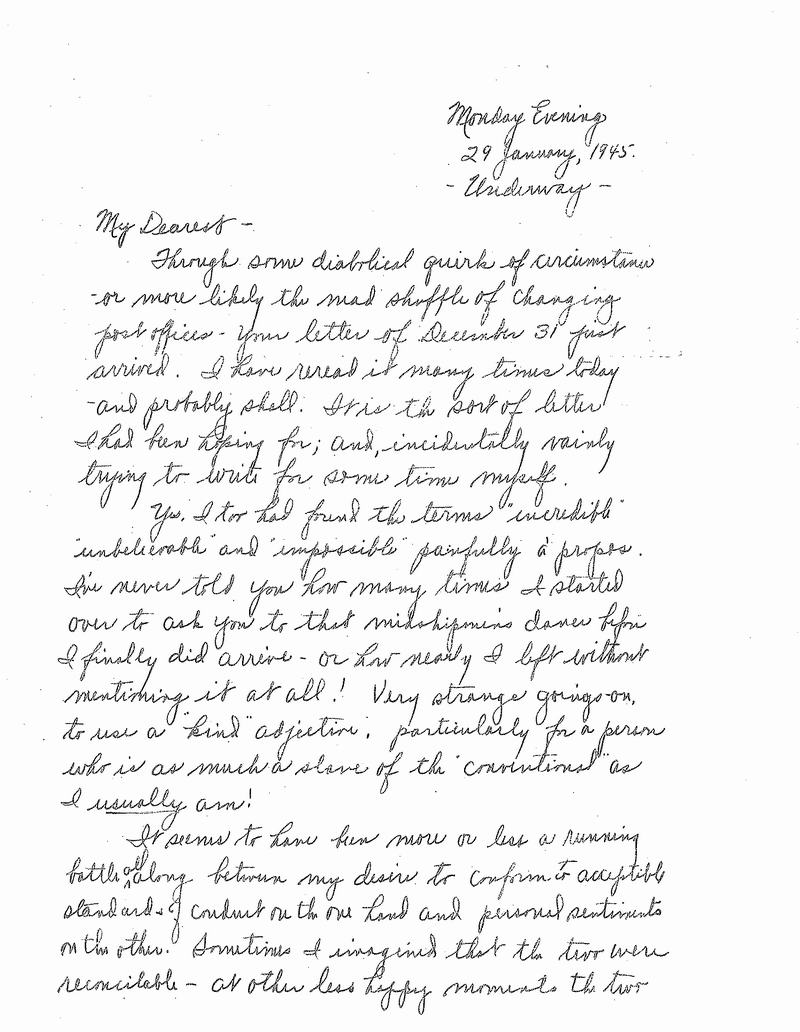 Monday Evening
29 January, 1945.
- Underway -
My Dearest -
Through some diabolical quirk of circumstance
-or more likely the mad shuffle of changing
post offices - your letter of December 31 just
arrived. I have reread it many times today
-and probably shall. It is the sort of letter
I had been hoping for; and, incidentally vainly
trying to write for some time myself.
Yes, I too had found the terms "incredible"
"unbelievable" and "impossible" painfully à propos.
I've never told you how many times I started
over to ask you to that midshipmen's dance before
I finally did arrive - or how nearly I left without
mentioning it at all! Very strange goings-on,
to use a "kind" adjective, particularly for a person
who is as much a slave of the "conventional" as
I usually am!
It seems to have been more or less a running
battle all along between my desire to conform to acceptible
standards of conduct on the one hand and personal sentiments
on the other. Sometimes I imagined that the two were
reconcilable - at other less happy moments the two